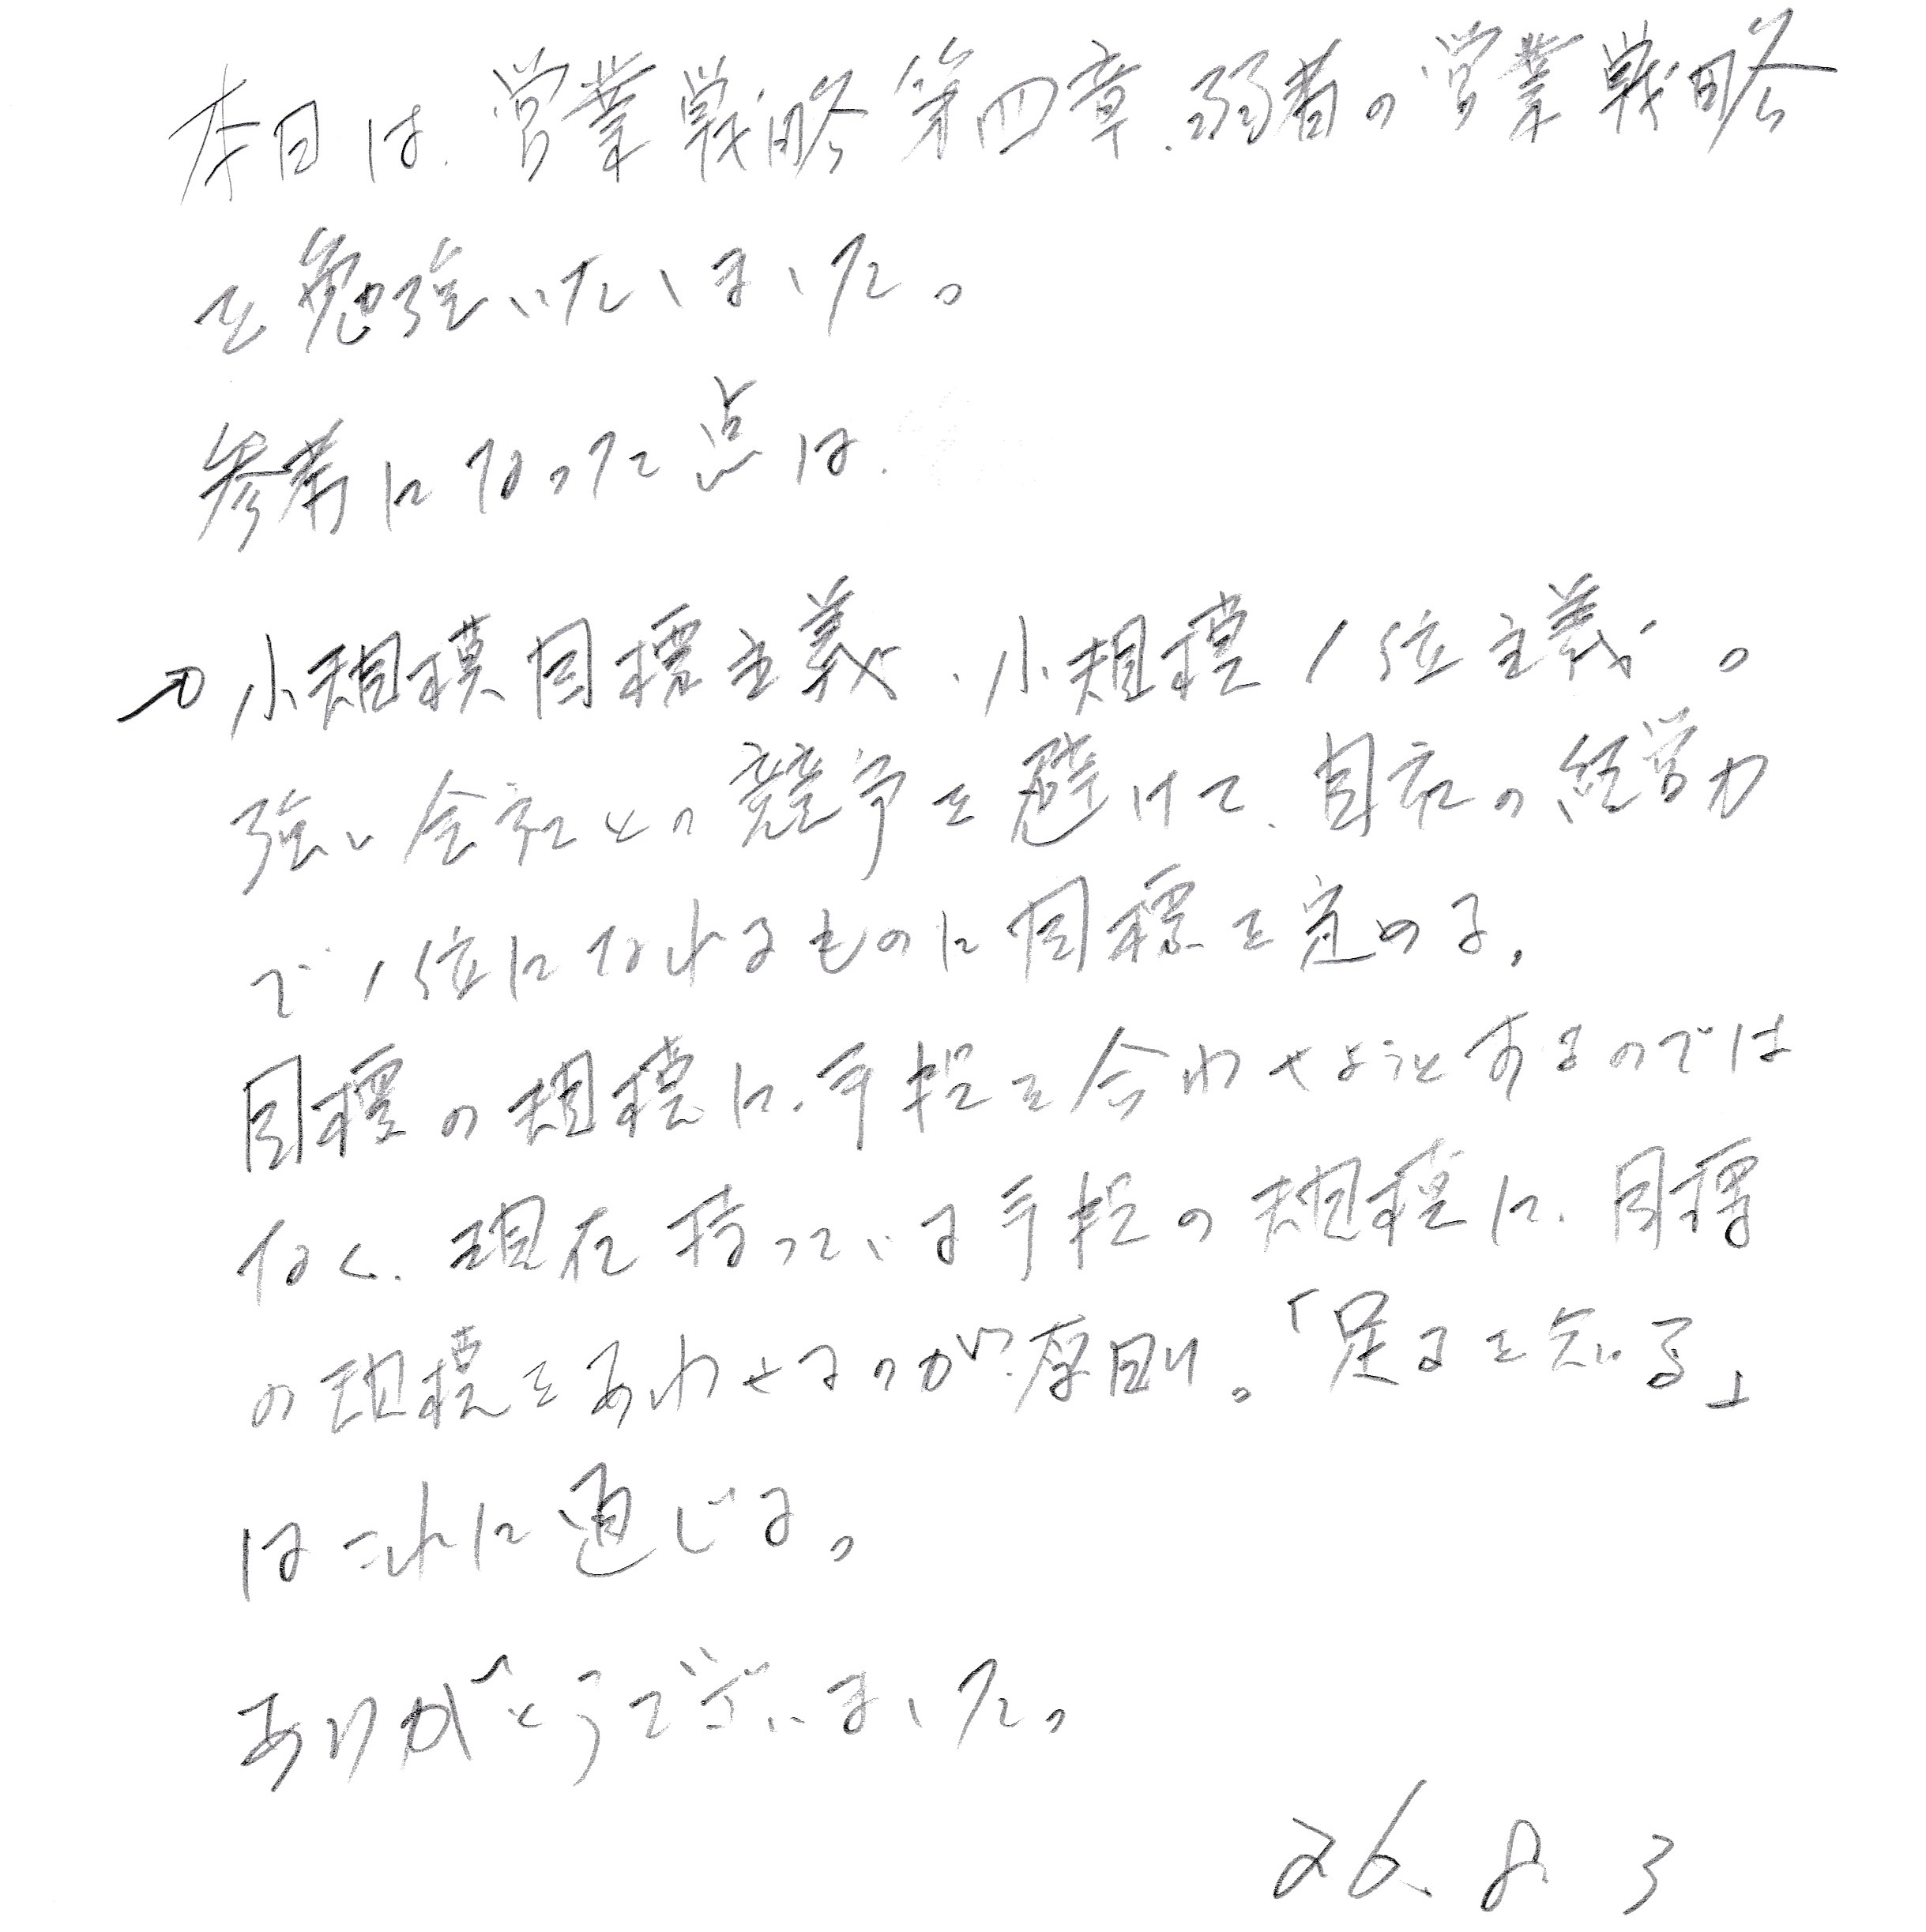 本日は、営業戦略第四章、弱者の営業戦略
を勉強いたしました。
参考になった点は、
→小規模目標主義、小規模1位主義。
強い会社との競争を避けて、自社の経営力
で1位になれるものに目標を定める。
目標の規模に、手段を合わせようとするのでは
なく、現在持っている手段の規模に、目標
の規模をあわせるのが原則。「足るを知る」
はこれに通じる。
ありがとうございました。
26.8.3